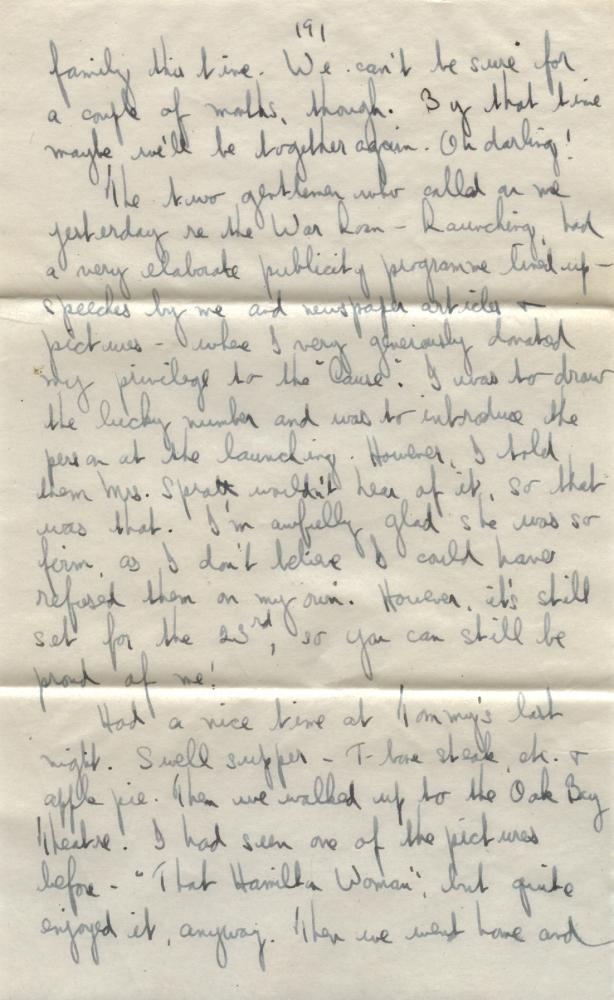 191
family this time. We can't be sure for
a couple of months, though. By that time
maybe we'll be together again. Oh darling!
The two gentlemen who called on me
yesterday re the War Loan - Launching, had
a very elaborate publicity programme lined up -
speeches by me and newspaper articles &
pictures - where I very generously donated
my privilege to the "Cause". I was to draw
the lucky number and was to introduce the
person at the launching. However, I told
them Mrs. Spratt wouldn't hear of it, so that
was that. I'm awfully glad she was so
firm, as I don't believe I could have
refused them on my own. However, it's still
set for the 23rd, so you can still be
proud of me!
Had a nice time at Tommy's last
night. Swell supper - T-bone steak, etc. &
apple pie. Then we walked up to the Oak Bay
Theatre. I had seen one of the pictures
before - "That Hamilton Woman", but quite
enjoyed it, anyway. Then we went home and